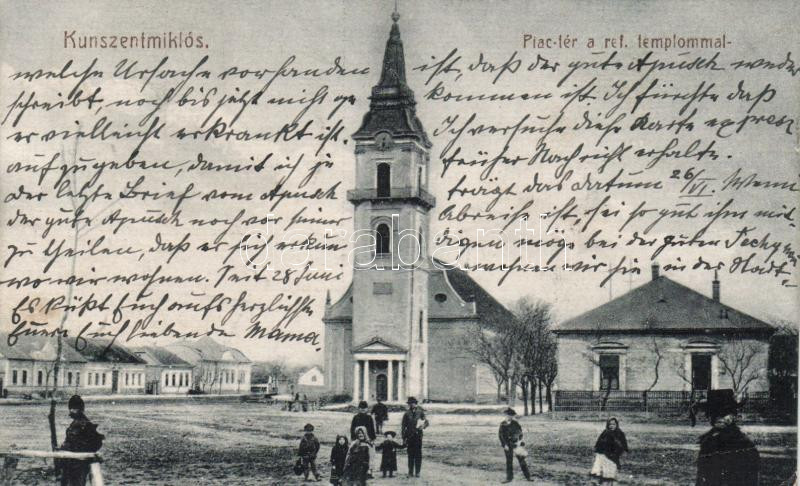 Kunszentmiklós.
Piac-tér a ref. templommal-
welche Ursache vorhanden ist, daß der gute Apusch weder
schreibt, noch bis jetzt nicht gekommen ist. Ich fürchte daß
er vielleicht erkrankt ist. Ich versuche diese Karte expresz
aufzugeben, damit ich je früher Nachricht erhalte.
der letzte Brief vom Apusch trägt das datum 26/VI. Wenn
der gute Apusch noch vor seiner Abreise ist, sei so gut ihm mit
zu theilen, daß er sich erkundigen möge bei der guten
wo wir wohnen. Seit 28 Juni wohnen wir in der Stadt
Es küßt Euch aufs herzlichste
Euere Euch liebende Mama.
darabanth